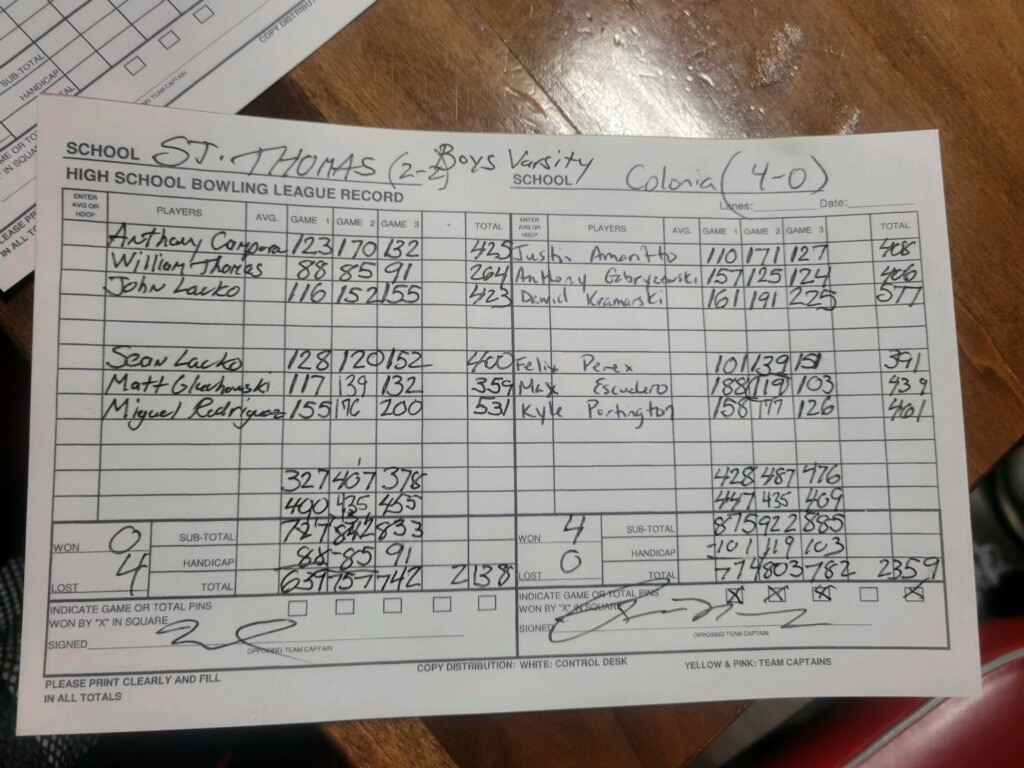 SUB-TOTAL
HANDICAP
COPY DISTRIBUT
OPPOSING TEAM CAPTAIN
PLEASE PRI
IN ALL TO
SCHOOL ST. THOMAS (2-2) Boys Varsity SCHOOL Colonia (4-0)
HIGH SCHOOL BOWLING LEAGUE RECORD Lanes: Date:
ENTER AVG OR HDCP PLAYERS AVG. GAME 1 GAME 2 GAME 3 TOTAL ENTER AVG OR HDCP PLAYERS AVG. GAME 1 GAME 2 GAME 3 TOTAL
Anthony Campora 123 170 132 425 Justin Amaritto 110 171 127 408
William Thomas 88 85 91 264 Anthony Gabryzewski 157 125 124 406
John Lacko 116 152 155 423 David Kramarski 161 191 225 577
Sean Lacko 128 120 152 400 Felix Perex 101 139 151 391
Matt Gluchowski 117 139 132 359 Max Escudero 188 119 103 439
Miguel Rodriguez 155 176 200 531 Kyle Portington 158 177 126 461
327 407 378 428 487 476
400 435 455 447 435 409
WON 0 SUB-TOTAL 727 842 833 WON 4 SUB-TOTAL 875 922 885
HANDICAP 88 -85 91 HANDICAP -101 119 103
LOST 4 TOTAL 639 757 742 2138 LOST 0 TOTAL 774 803 782 2359
INDICATE GAME OR TOTAL PINS INDICATE GAME OR TOTAL PINS X X X X
WON BY "X" IN SQUARE WON BY "X" IN SQUARE
SIGNED SIGNED
OPPOSING TEAM CAPTAIN OPPOSING TEAM CAPTAIN
COPY DISTRIBUTION: WHITE: CONTROL DESK YELLOW & PINK: TEAM CAPTAINS
PLEASE PRINT CLEARLY AND FILL
IN ALL TOTALS